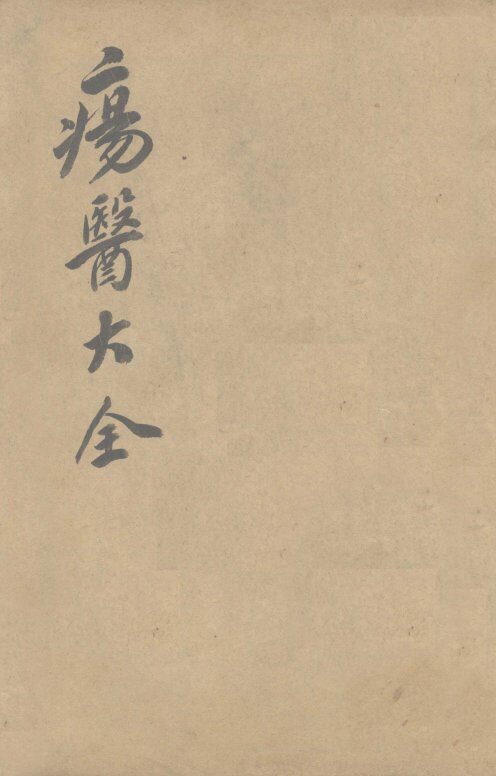 瘍醫大全